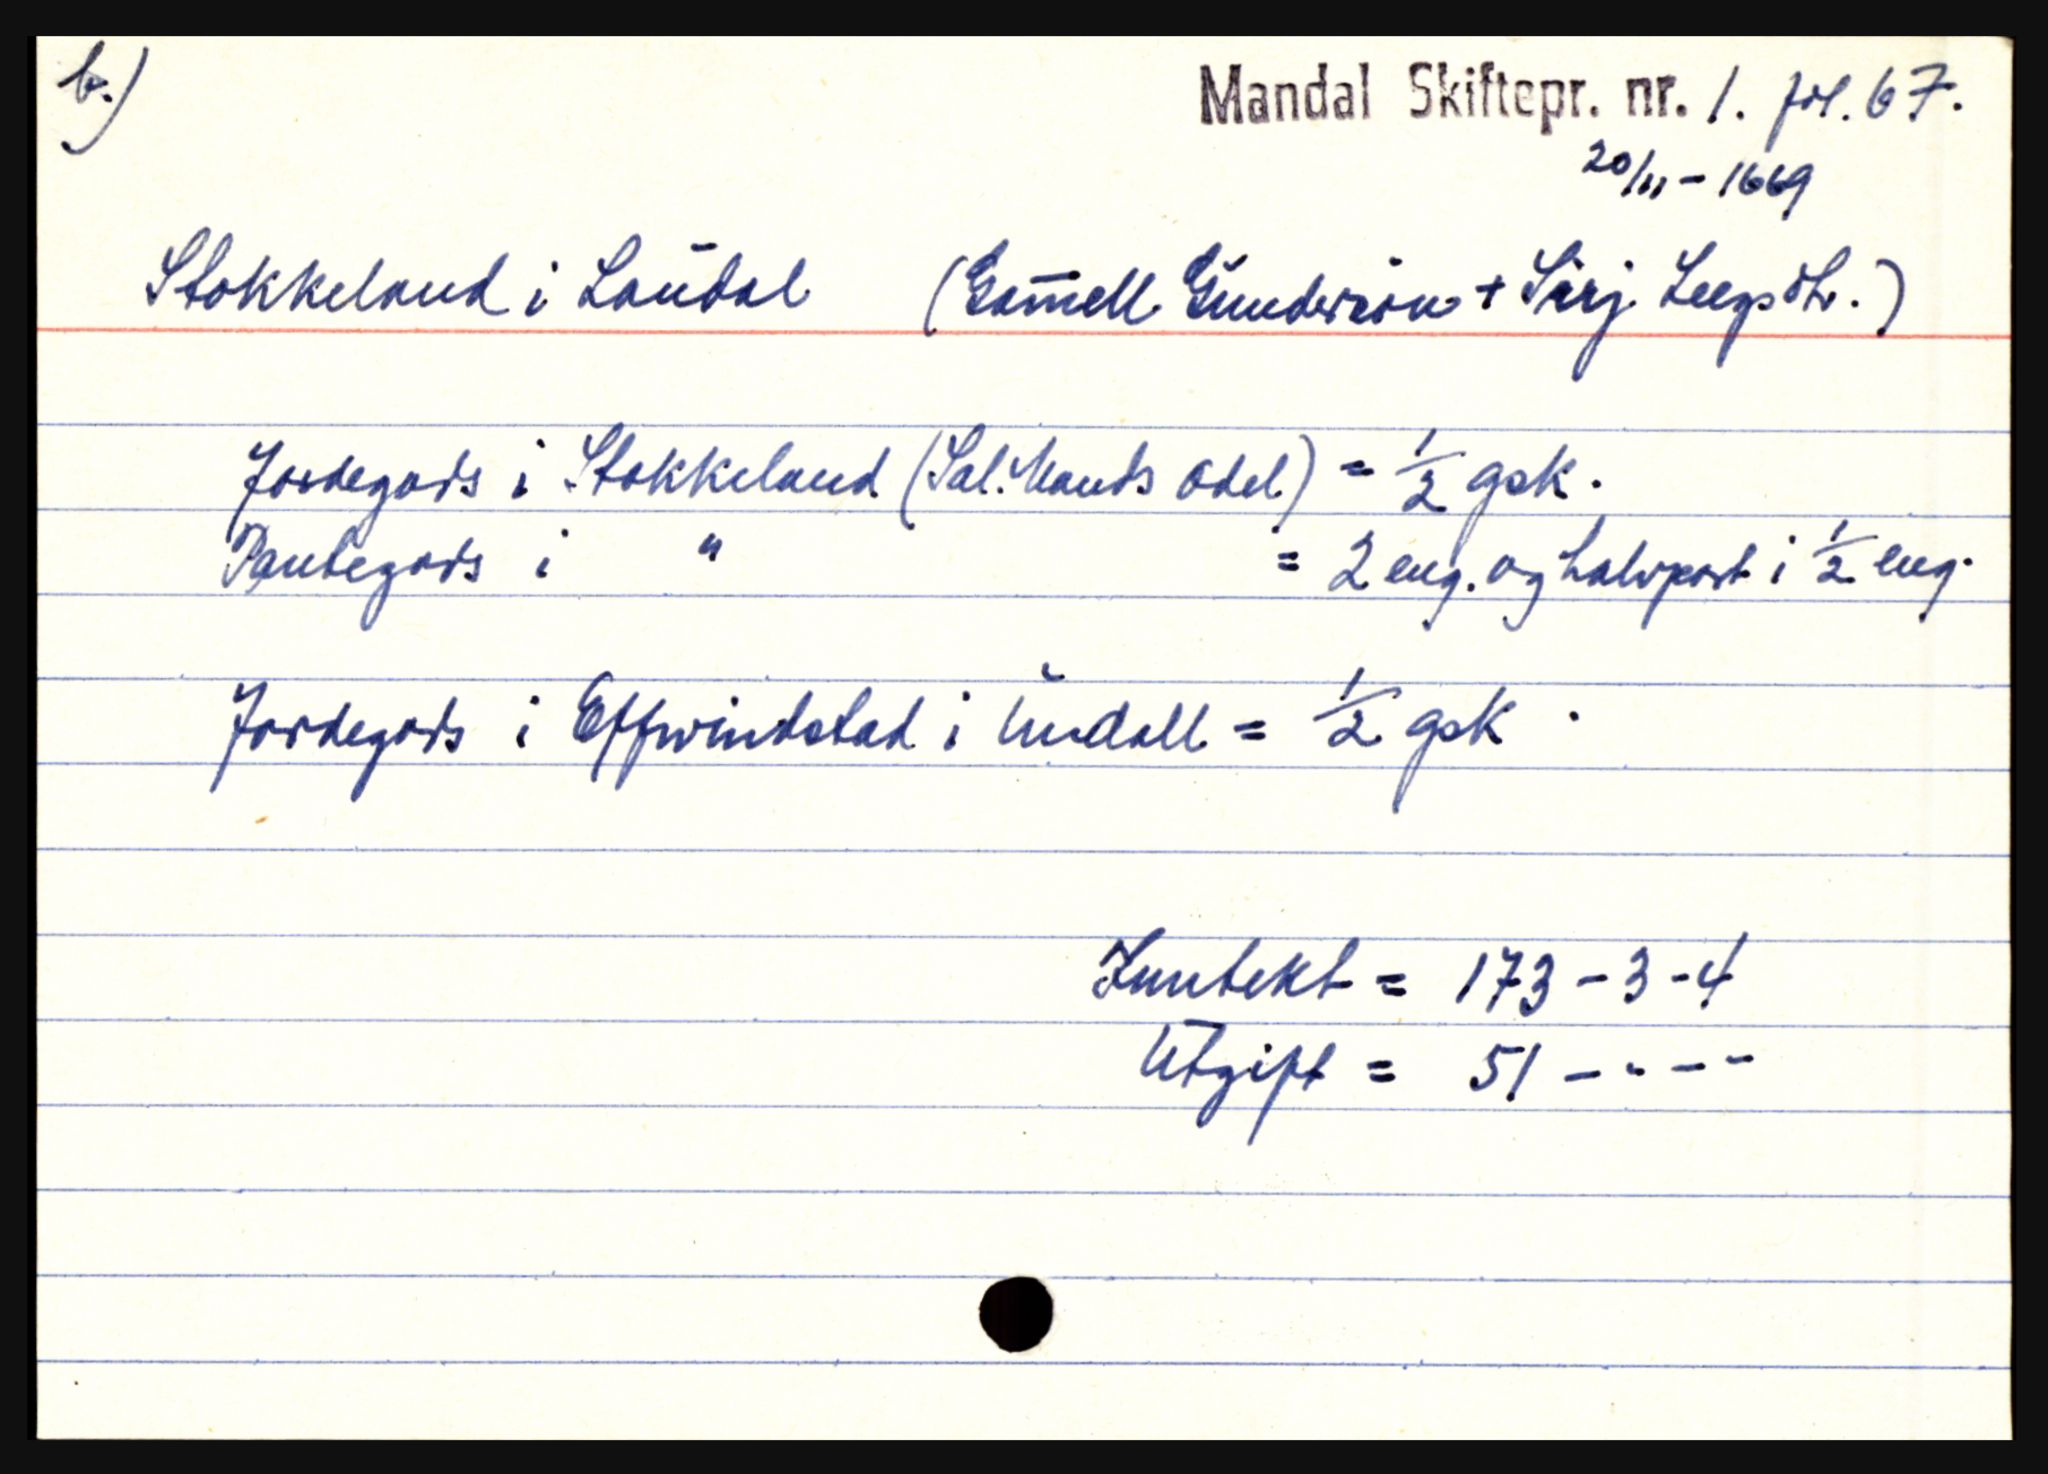 b.)
Mandal Skiftepr. nr. 1. fol. 67.
20/11 - 1669
Stokkeland i Laudal (Gamell Gundersøn + Sirj Leegsdtr.)
Jordegods i Stokkeland (Sal. Mands Odel) = 1/2 gsk.
Pantegods i " = 2 eng. og halvpart i 1/2 eng.
Jordegods i Effwindstad i Undall = 1/2 gsk.
Inntekt = 173 - 3 - 4
Utgift = 51 - - - -